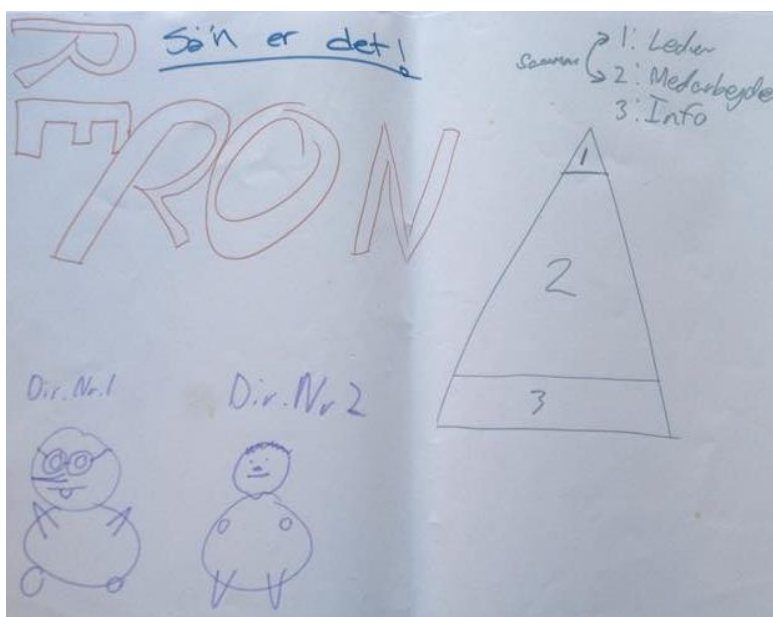 RE
RON
Så'n er det!
Sammen
1: Leder
2: Medarbejder
3: Info
1
2
3
Dir. Nr. 1
Dir. Nr 2